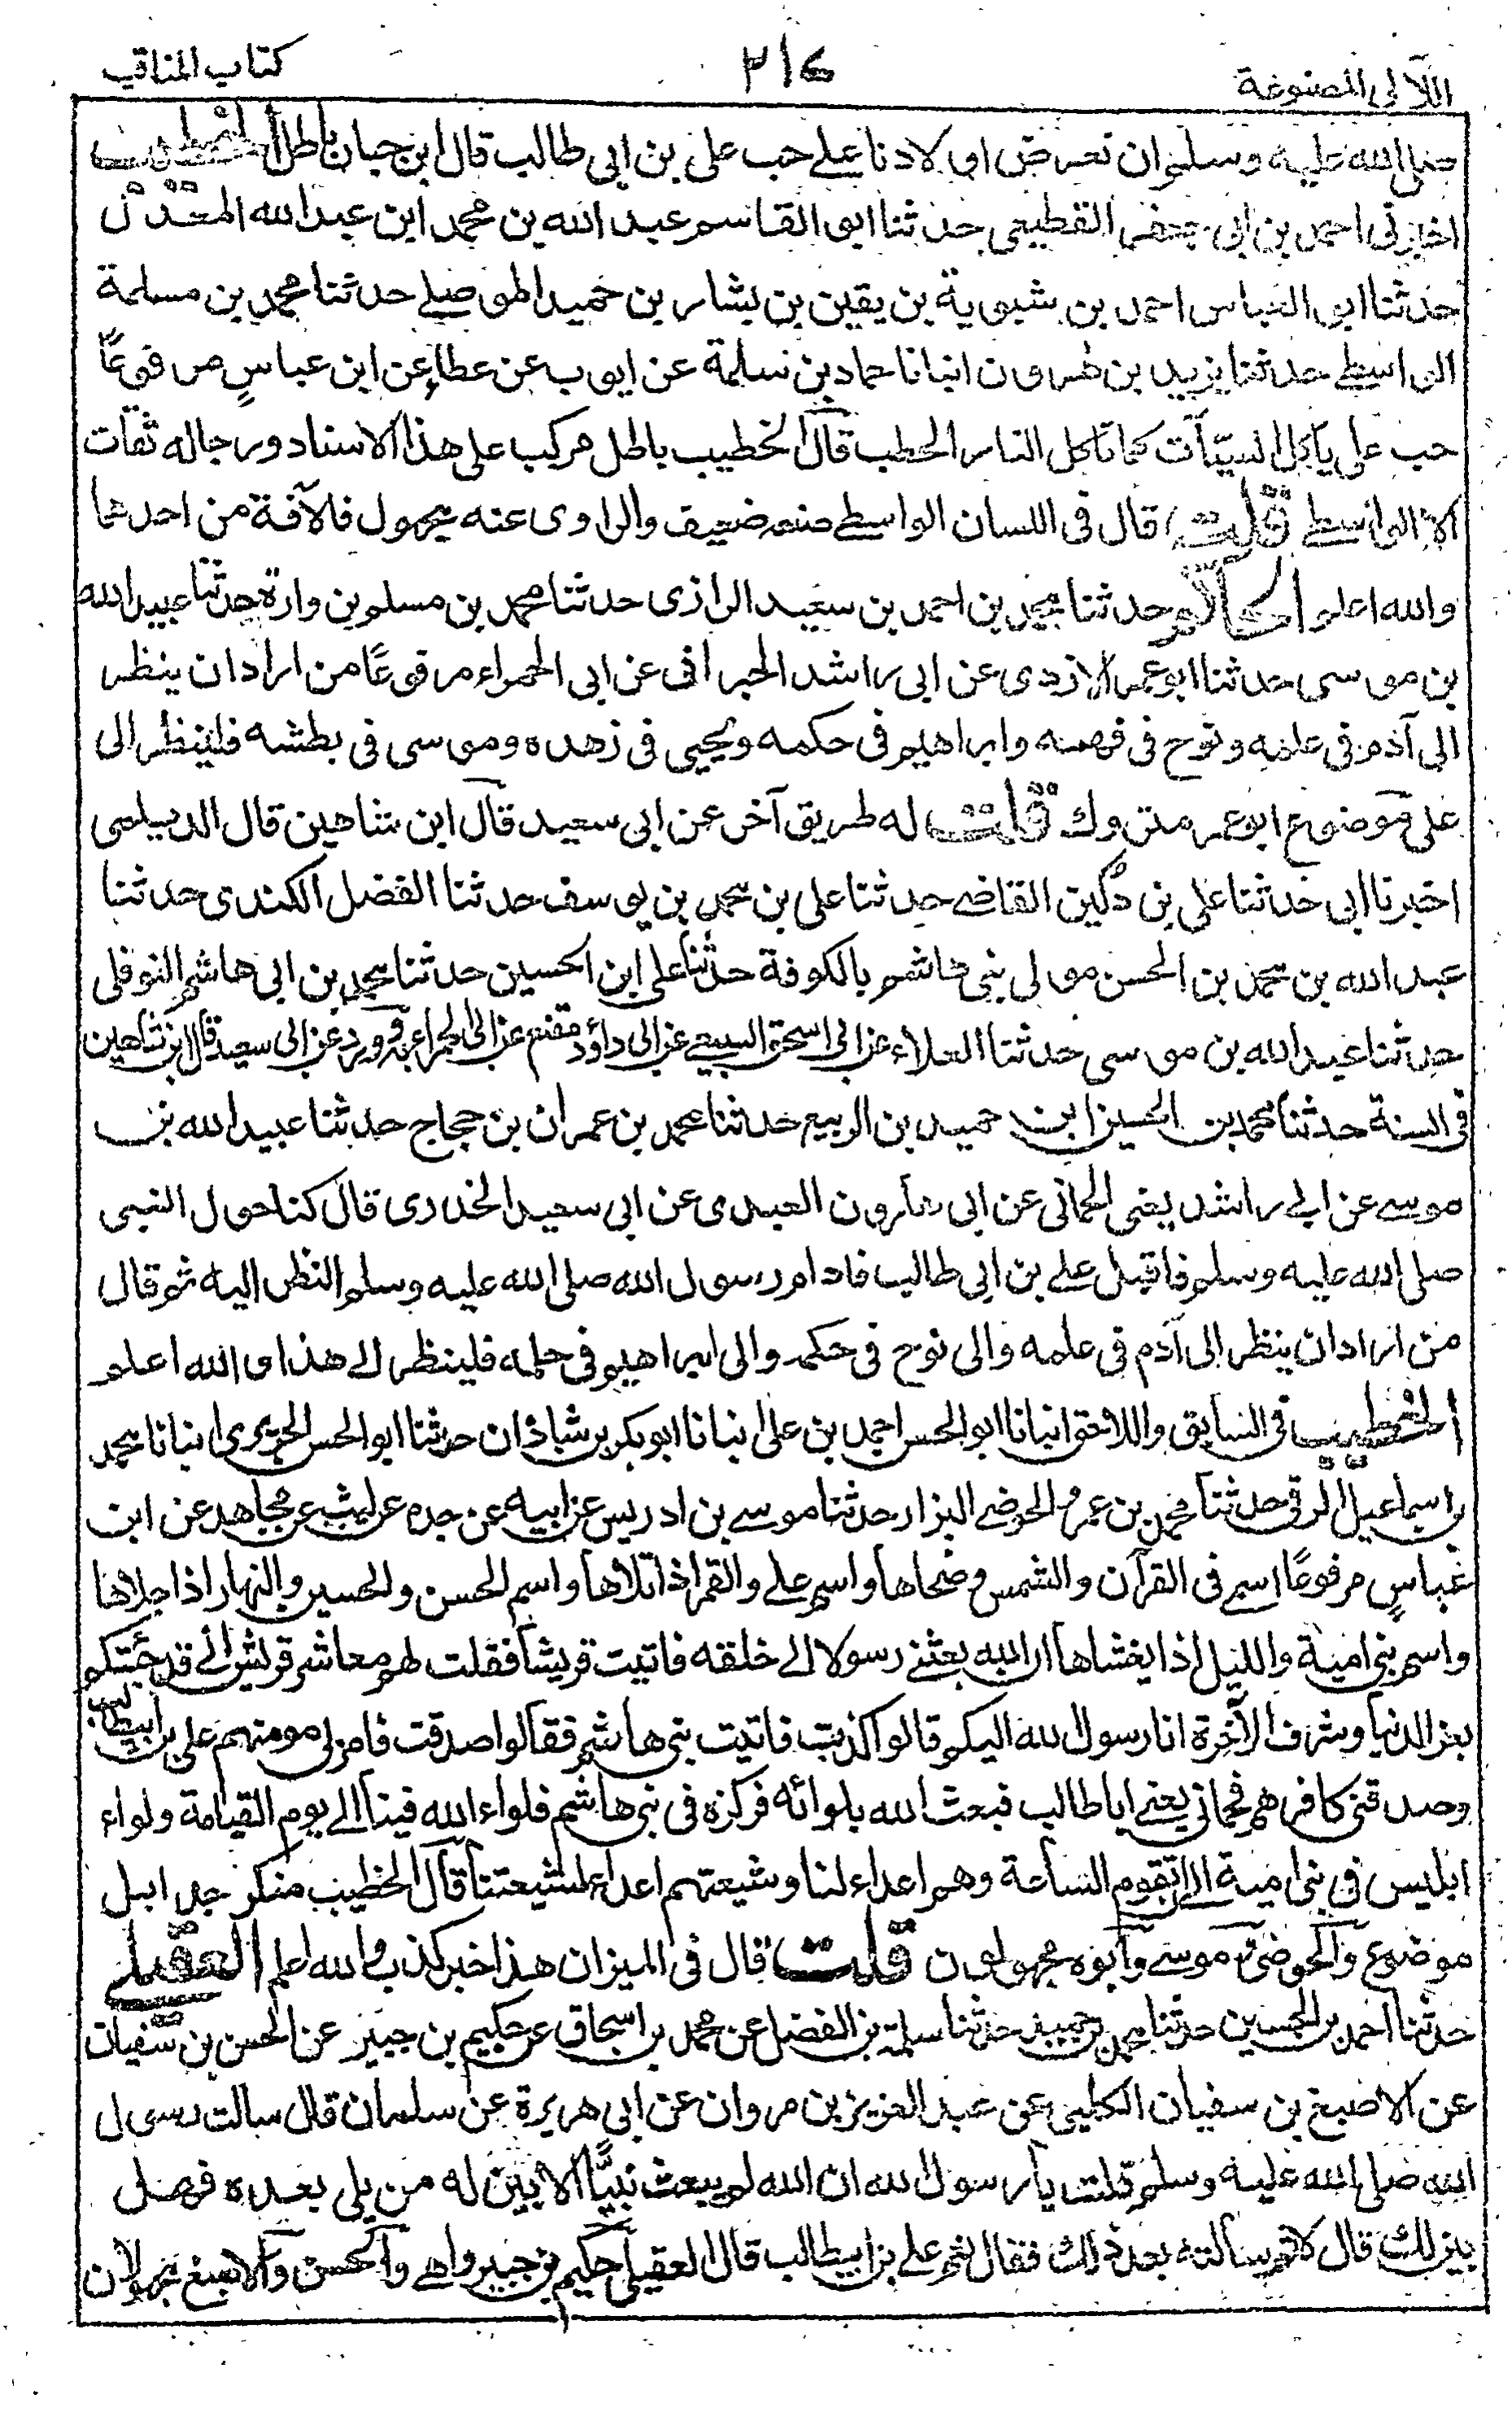 اللآلى المصنوعة
٢١٦
كتاب المناقب
صلى الله عليه وسلم ان نعرض اولادنا على حب على بن ابى طالب قال ابن حبان باطل الخطيب
اخبرنى احمد بن ابى جعفر القطيعى حدثنا ابو القاسم عبد الله بن محمد ابن عبد الله المعدل
حدثنا ابو العباس احمد بن شبوية بن يقين بن بشار بن حميد الموصلى حدثنا محمد بن مسلمة
الواسطى حدثنا يزيد بن هرون انبانا حماد بن سلمة عن ايوب عن عطاء عن ابن عباسٍ مرفوعًا
حب على ياكل السيّآت كما تاكل النار الحطب قال الخطيب باطل مركب على هذا الاسناد ورجاله ثقات
الا الواسطى قلت قال فى اللسان الواسطى ضعيف والراوى عنه مجهول فالآفة من احدهما
والله اعلم الحاكم حدثنا محمد بن احمد بن سعيد الرازى حدثنا محمد بن مسلم بن وارة حدثنا عبيد الله
بن موسى حدثنا ابو عمر الازدى عن ابى راشد الحبرانى عن ابى الحمراء مرفوعًا من اراد ان ينظر
الى آدم فى علمه ونوح فى فهمه وابراهيم فى حكمه ويحيى فى زهده وموسى فى بطشه فلينظر الى
على موضوع ابو عمر متروك قلت له طريق آخر عن ابى سعيد قال ابن شاهين قال الديلمى
اخبرنا ابى حدثنا على بن دكين القاضى حدثنا على بن محمد بن يوسف حدثنا الفضل الكندى حدثنا
عبد الله بن محمد بن الحسن مولى بنى هاشم بالكوفة حدثنا على ابن الحسين حدثنا محمد بن ابى هاشم النوفلى
حدثنا عبد الله بن موسى حدثنا العلاء عن ابى اسحق السبيعى عن ابى داؤد مقنع عن ابى الحمراء به وورد عن ابى سعيد قال ابن شاهين
فى السنة حدثنا محمد بن الحسين ابن حميد بن الربيع حدثنا محمد بن عمران بن حجاج حدثنا عبيد الله بن
موسى عن ابى راشد يعنى الحمانى عن ابى هارون العبدى عن ابى سعيد الخدرى قال كنا حول النبى
صلى الله عليه وسلم فاقبل على بن ابى طالب فادام رسول الله صلى الله عليه وسلم النظر اليه ثم قال
من اراد ان ينظر الى آدم فى علمه والى نوح فى حكمه والى ابراهيم فى حلمه فلينظر الى هذا والله اعلم
الخطيب فى السابق واللاحق انبانا ابو الحسن احمد بن على انبانا ابو بكر بن شاذان حدثنا ابو الحسن الحريرى انبانا محمد
بن اسماعيل الرقى حدثنا محمد بن عمرو الحوضى البزار حدثنا موسى بن ادريس عن ابيه عن جده عن ليث عن مجاهد عن ابن
عباسٍ مرفوعًا اسمى فى القرآن والشمس وضحاها واسم على والقمر اذا تلاها واسم الحسن والحسين والنهار اذا جلاها
واسم بنى امية والليل اذا يغشاها ان الله بعثنى رسولا الى خلقه فاتيت قريشا فقلت لهم معاشر قريش انى قد جئتكم
بعز الدنيا وشرف الآخرة انا رسول الله اليكم قالوا كذبت فاتيت بنى هاشم فقالوا صدقت فامن بى مومنهم على بن ابيطالب
وصدقنى كافرهم فحمانى يعنى ابا طالب فبعث الله بلوائه فركزه فى بنى هاشم فلواء الله فينا الى يوم القيامة ولواء
ابليس فى بنى امية الى ان تقوم الساعة وهم اعداء لنا وشيعتهم اعداء لشيعتنا قال الخطيب منكر جدا بل
موضوع والحوضى وموسى وابوه مجهولون قلت قال فى الميزان هذا خبر كذب والله اعلم العقيلى
حدثنا احمد بن الحسين حدثنا محمد بن حميد حدثنا سلمة بن الفضل عن محمد بن اسحاق عن حكيم بن جبير عن الحسن بن سفيان
عن الاصبغ بن سفيان الكلبى عن عبد العزيز بن مروان عن ابى هريرة عن سلمان قال سالت رسول
الله صلى الله عليه وسلم قلت يا رسول الله ان الله لم يبعث نبيًّا الا بين له من يلى بعده فهل
بين لك قال لا ثم سالته بعد ذلك فقال نعم على بن ابيطالب قال العقيلى حكيم بن جبير واهى والحسن والاصبغ مجهولان